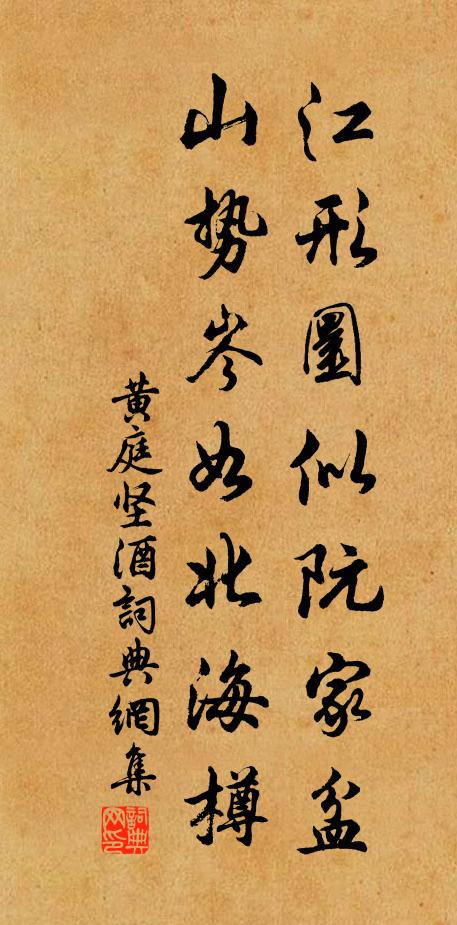 江形圍似阮家盆
山勢岑如北海樽
黄庭坚酒詞典網集
詞典网印